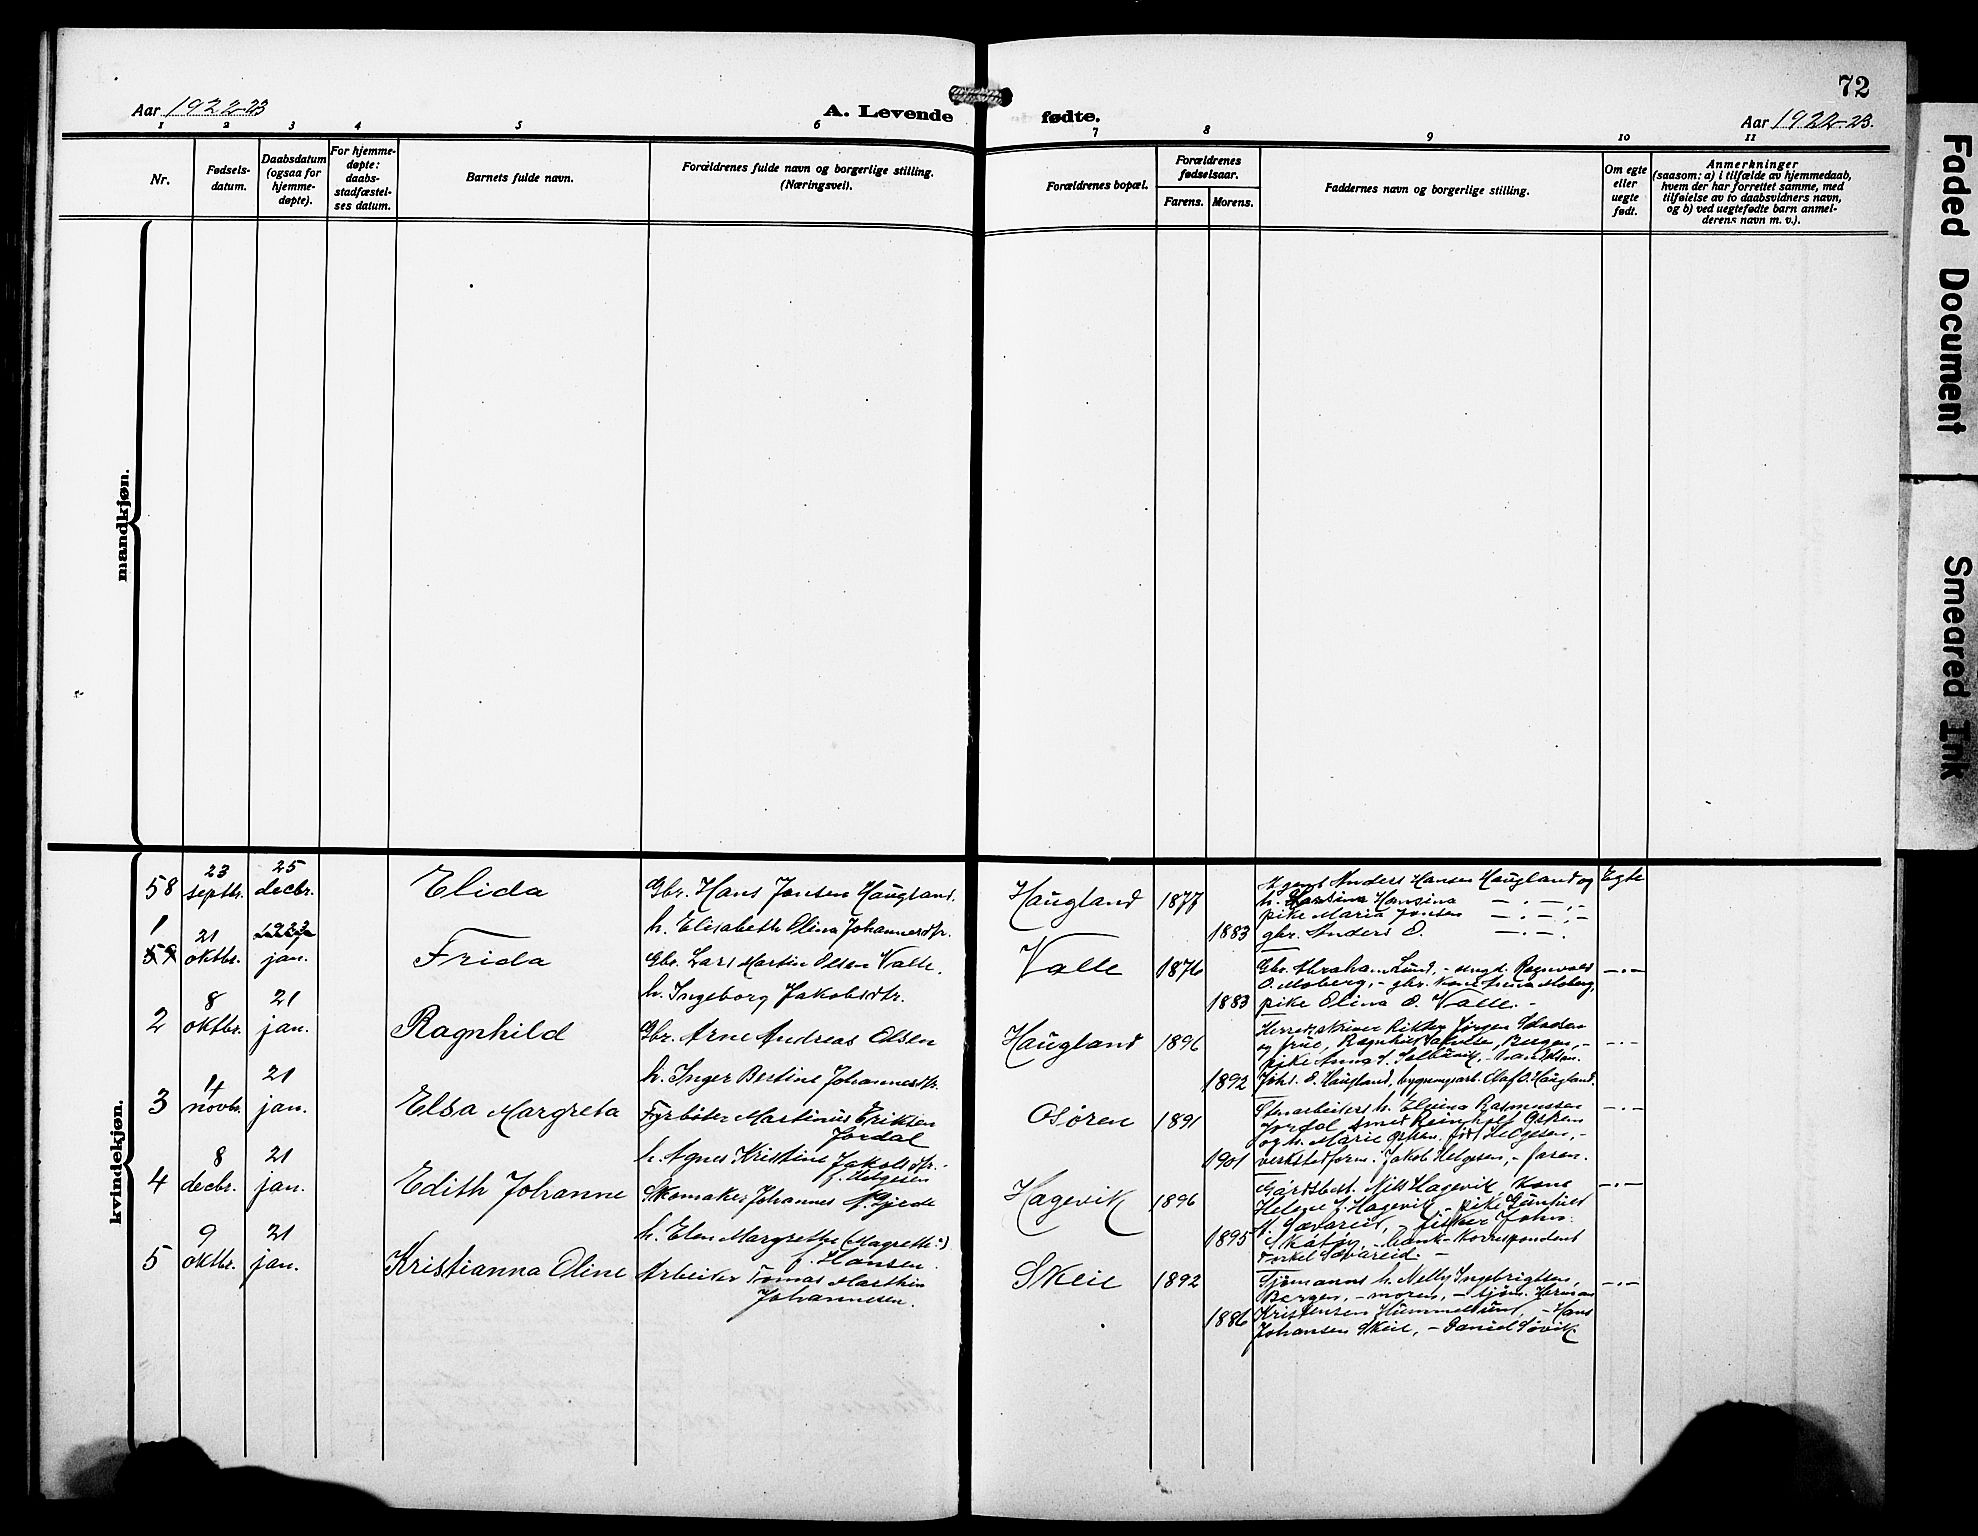 72
Aar 1922-23
A. Levende fødte.
Aar 1922-23.
1 2 3 4 5 6 7 8 9 10 11
Nr.
Fødsels-
datum.
Daabsdatum
(ogsaa for
hjemme-
døpte).
For hjemme-
døpte:
daabs-
stadfæstel-
ses datum.
Barnets fulde navn.
Forældrenes fulde navn og borgerlige stilling.
(Næringsvei).
Forældrenes bopæl.
Forældrenes
fødselsaar.
Farens. Morens.
Faddernes navn og borgerlige stilling.
Om egte
eller
uegte
født.
Anmerkninger
(saasom: a) i tilfælde av hjemmedaab,
hvem der har forrettet samme, med
tilføielse av to daabsvidners navn,
og b) ved uegtefødte barn anmel-
derens navn m. v.).
mandkjøn.
kvindekjøn.
58
23
septbr.
25
decbr.
Elida
Gbr. Hans Jonsen Haugland.
h. Elisabeth Olina Johannesdtr.
Haugland
1877
1883
Anders Hansen Haugland og
h. Hansina
pike Maria Jonsen
gbr. Anders O.
Egte
1
59
21
oktbr.
1923
jan.
Frida
Gbr. Lars Martin Olsen Valle.
h. Ingeborg Jakobsdtr.
Valle
1876
1883
Gbr. Abraham Lund, - ungk. Ragnvald
O. Moberg, - gbr. kone Anna Moberg,
pike Olina O. Valle. -
-·-
2
8
oktbr.
21
jan.
Ragnhild
Gbr. Arne Andreas Olsen
h. Inger Bertine Johannesdtr.
Haugland
1896
1892
Herredskriver Jørgen
og frue, Ragnhild Bergen, -
pike Anna
Johs. O. Haugland, Olaf O. Haugland.
-·-
3
14
novbr.
21
jan.
Elsa Margreta
Fyrbøter Martinus Eriksen
Jordal
h. Agnes Kristine Jakobsdtr.
f. Helgesen
Osøren
1891
1901
Stenarbeiders h. Rasmussen
Jordal, smed
og h. Marie født Helgesen, -
verkstedform. Jakob Helgesen, - faren.
-·-
4
8
decbr.
21
jan.
Edith Johanne
Skomaker Johannes N. Gjerde
h. Elen Margrethe (Magrethe:)
f. Hansen
Hagevik
1896
1895
Gårdsbest. Nils Hagevik, kone
Helene Hagevik, - pike Gunhild
N. Sævareid, fisker Johs.
bank-korrespondent
Torkel Sævareid. -
-·-
5
9
oktbr.
21
jan.
Kristianna Oline
Arbeider Tomas Marthin
Johannesen.
Skeie
1892
1886
Sjømanns h. Nelly Ingebrigtsen,
Bergen, - moren, - sjøm. Herman
Kristensen Hummelsund, - Hans
Johansen Skeie, - Daniel Søvik
-·-
Faded Document
Smeared Ink